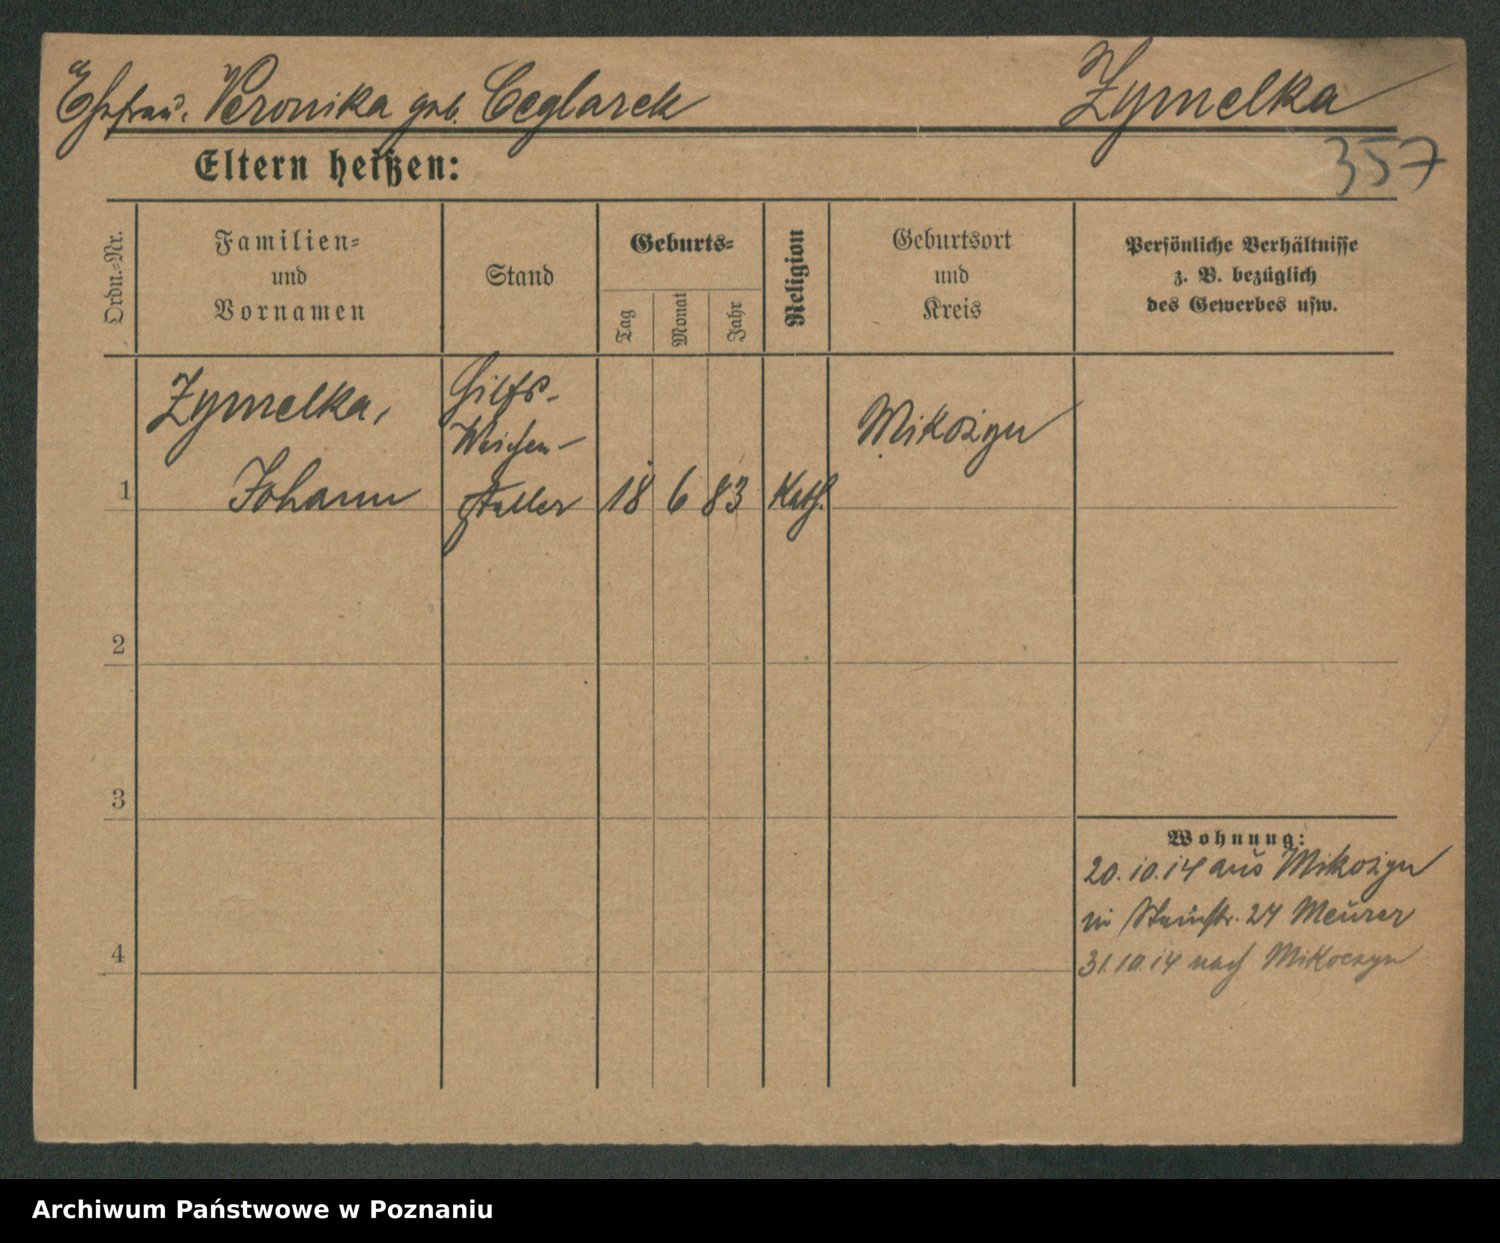 Ehefrau. Veronika geb. Ceglarek Zymelka
Eltern heißen: 357
Ordn.-Nr.
Familien-
und
Vornamen
Stand
Geburts-
Tag
Monat
Jahr
Religion
Geburtsort
und
Kreis
Persönliche Verhältnisse
z. B. bezüglich
des Gewerbes usw.
1
Zymelka,
Johann
Hilfs-
Weichen-
steller
18 6 83 Kath.
Mikozyn
2
3
4
Wohnung:
20.10.14 aus Mikozyn
in 24 Meurer
31.10.14 nach Mikoczyn
Archiwum Państwowe w Poznaniu